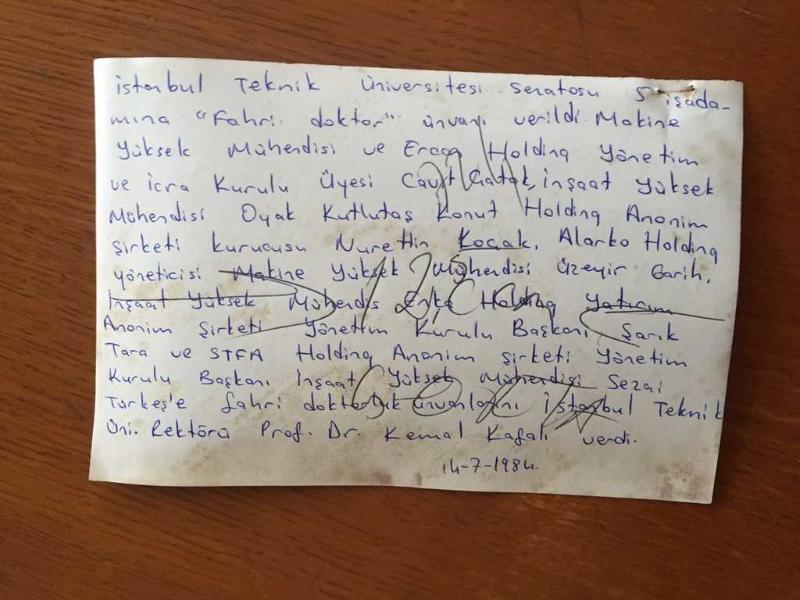 İstanbul Teknik Üniversitesi Senatosu 5 işada-
mına "Fahri doktor" ünvanı verildi. Makine
Yüksek Mühendisi ve Holding Yönetim
ve İcra Kurulu Üyesi Cavit Çıtak, İnşaat Yüksek
Mühendisi Oyak Kutlutaş Konut Holding Anonim
Şirketi kurucusu Nurettin Koçak, Alarko Holding
yöneticisi Makine Yüksek Mühendisi Üzeyir Garih,
İnşaat Yüksek Mühendis Enka Holding Yatırım
Anonim Şirketi Yönetim Kurulu Başkanı Şarık
Tara ve STFA Holding Anonim Şirketi Yönetim
Kurulu Başkanı İnşaat Yüksek Mühendisi Sezai
Türkeş'e fahri doktorluk ünvanlarını İstanbul Teknik
Üni. Rektörü Prof. Dr. Kemal Kafalı verdi.
14-7-1984.